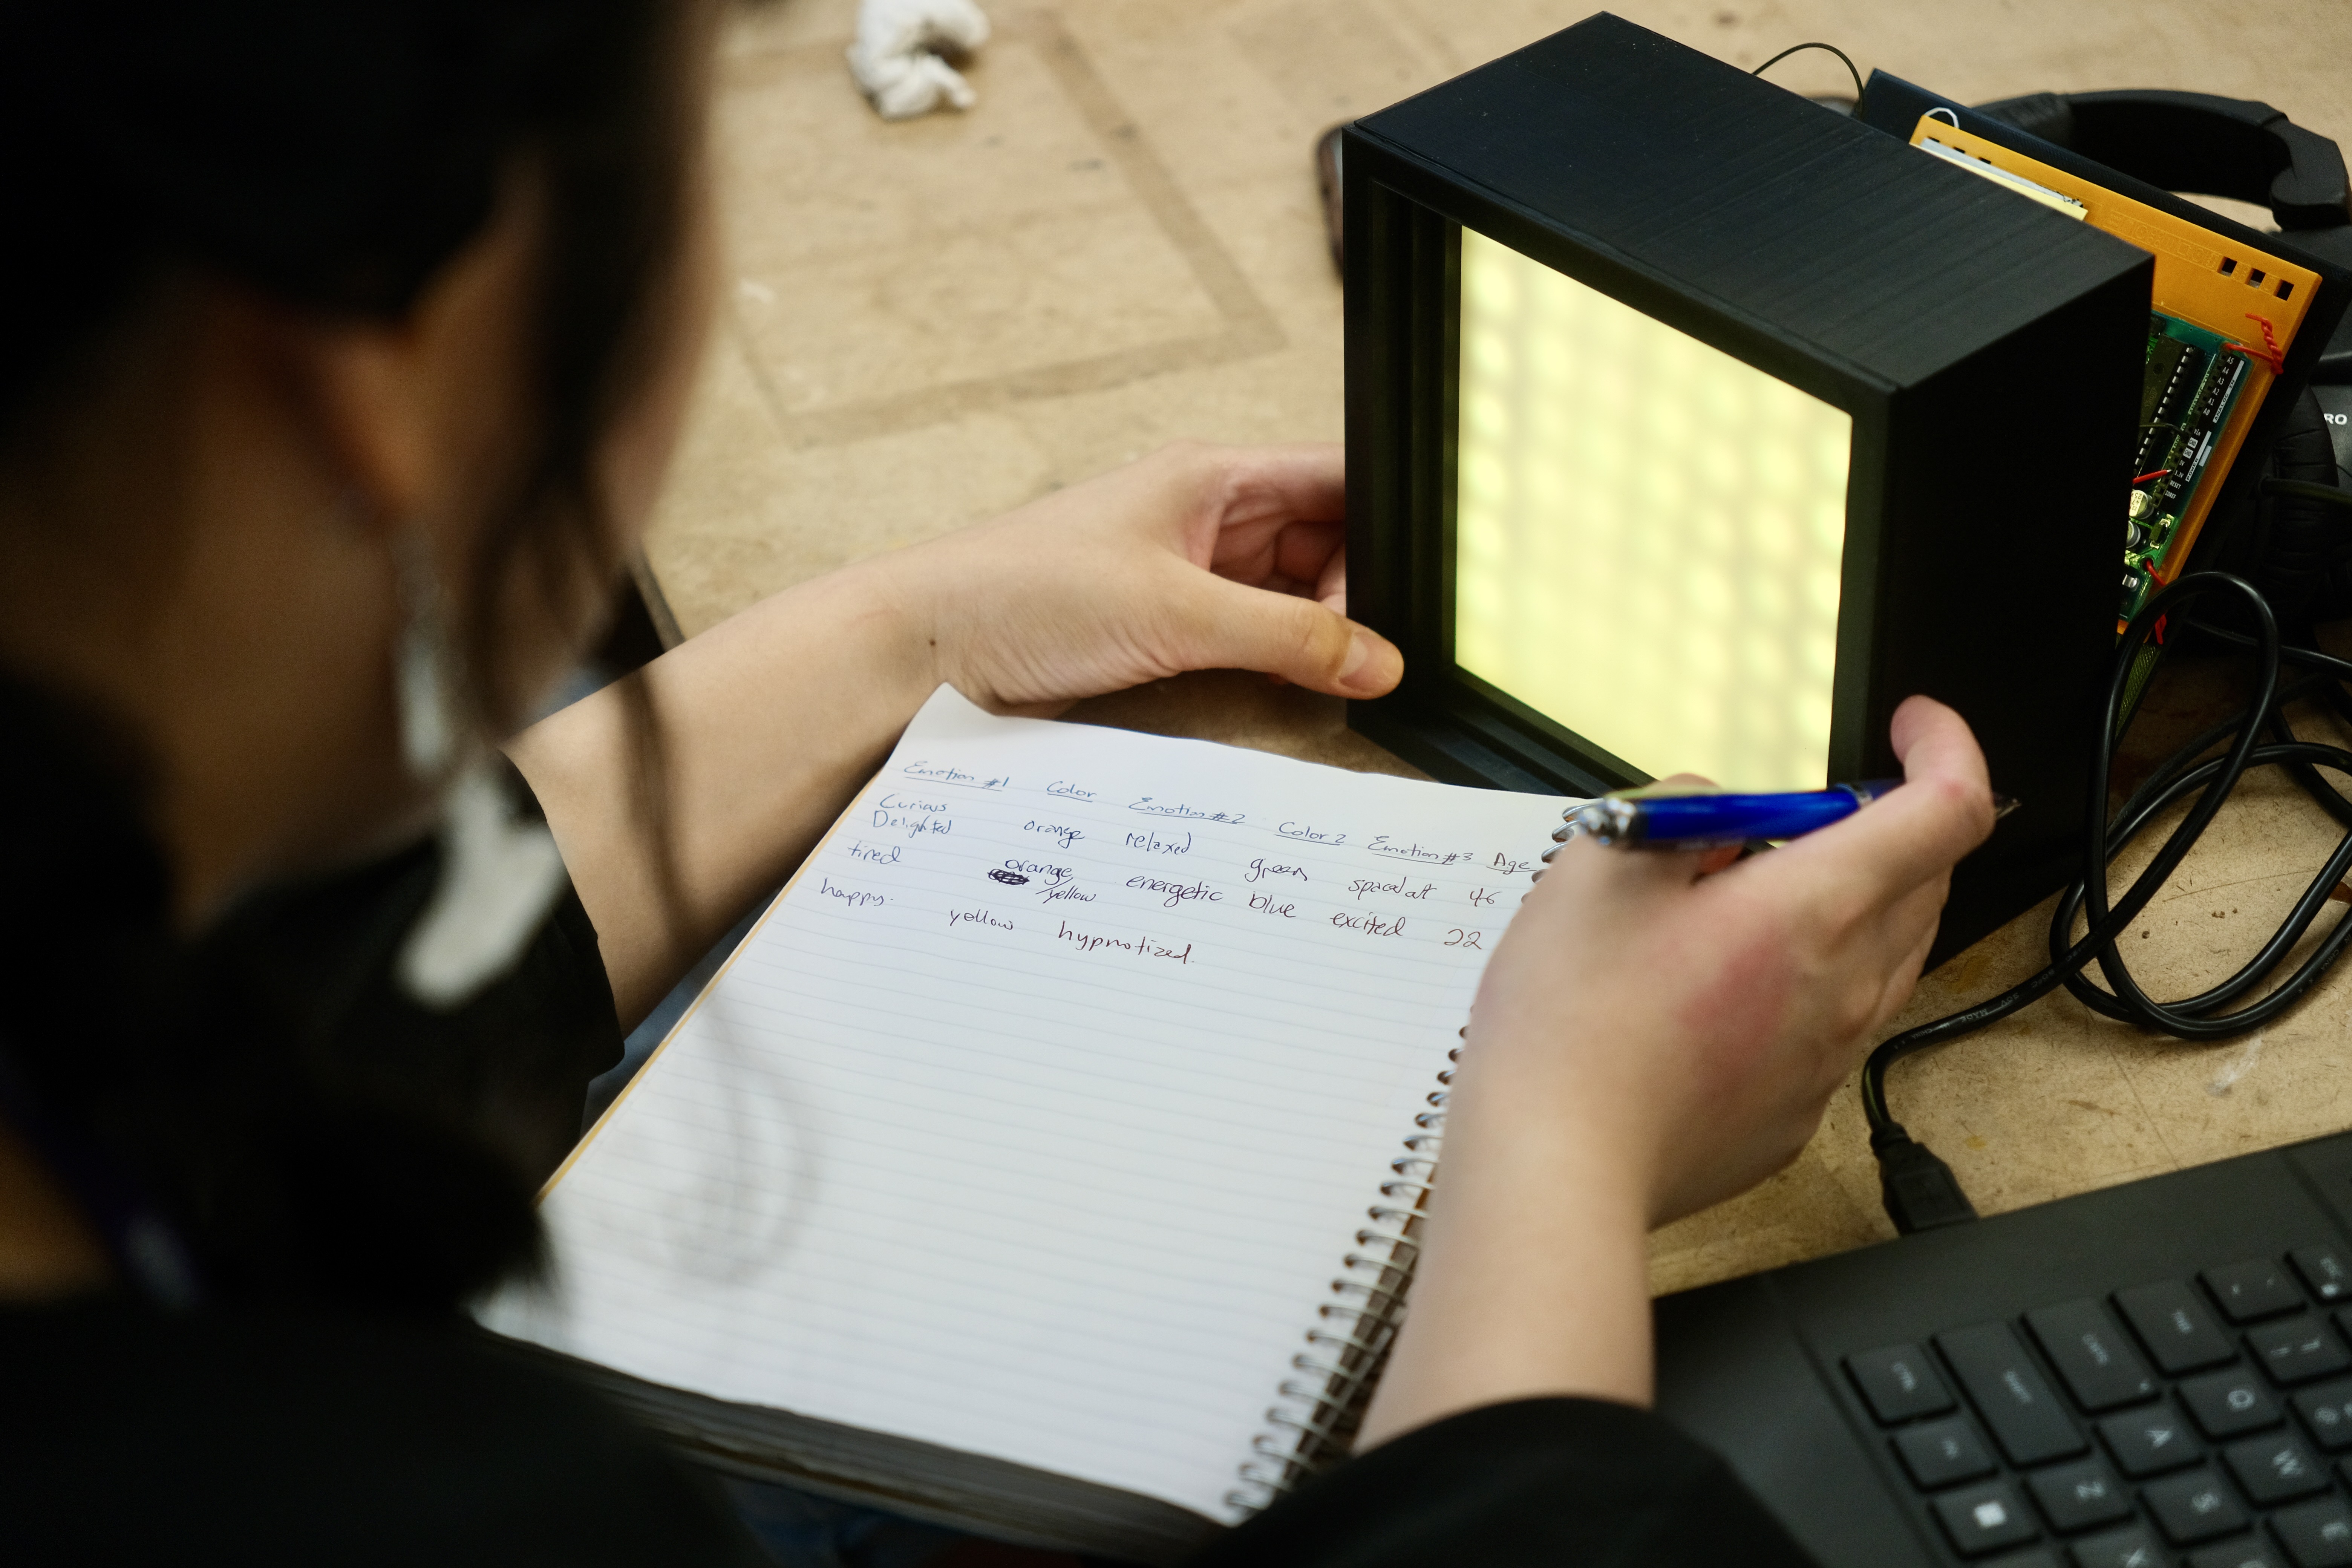 Emotion #1 Color Emotion #2 Color 2 Emotion #3 Age
Curious
Delighted orange relaxed green spaced out 46
tired orange/yellow energetic blue excited 22
happy. yellow hypnotized.
RO
A
Q
W
Z
S